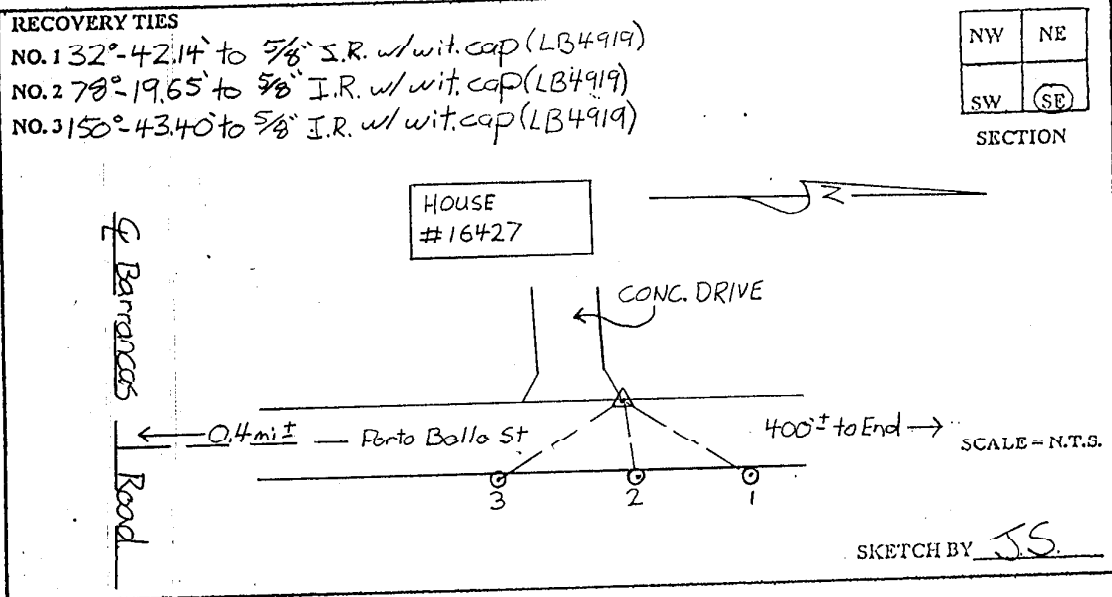 RECOVERY TIES
NO. 1 32°-42.14' to 5/8" I.R. w/wit.cap (LB4919)
NO. 2 78°-19.65' to 5/8" I.R. w/wit.cap (LB4919)
NO. 3 150°-43.40' to 5/8" I.R. w/wit.cap (LB4919)
NW NE
SW SE
SECTION
HOUSE
#16427
N
CONC. DRIVE
℄ Barrancas Road
0.4 mi ± Porto Bello St
400'± to End →
SCALE = N.T.S.
3 2 1
SKETCH BY J.S.